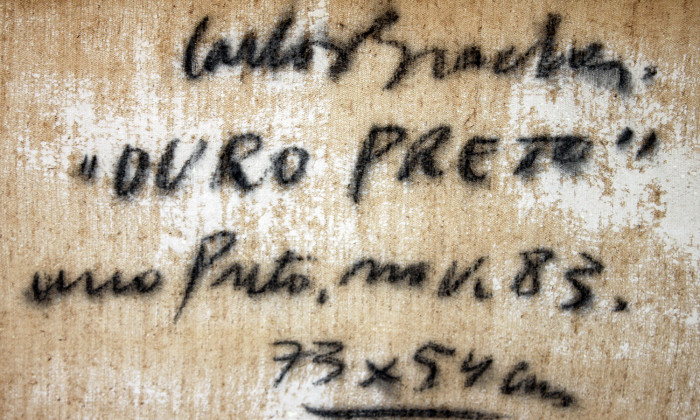 Carlos Bracher.
"OURO PRETO"
Ouro Preto, nov. 83.
73 x 54 cm